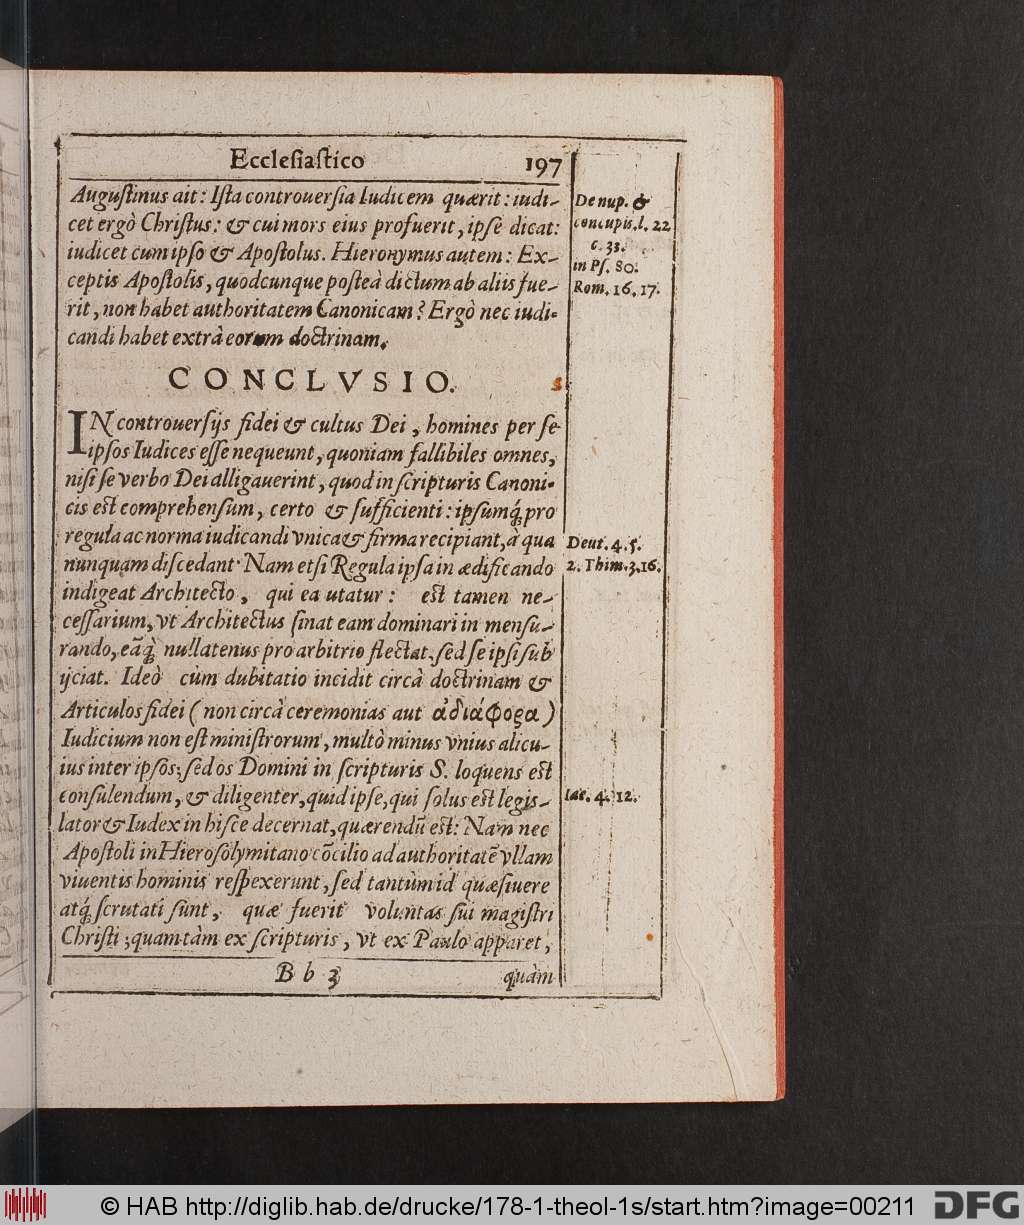 Ecclesiastico 197
Augustinus ait: Ista controuersia Iudicem quærit: iudi-
cet ergò Christus: & cui mors eius profuerit, ipse dicat:
iudicet cum ipso & Apostolus. Hieronymus autem: Ex-
ceptis Apostolis, quodcunque posteà dictum ab aliis fue-
rit, non habet authoritatem Canonicam? Ergò nec iudi-
candi habet extrà eorum doctrinam.
De nup. &
concupis. l. 22
c. 33.
in Ps. 80.
Rom. 16. 17.
CONCLVSIO.
IN controuersijs fidei & cultus Dei, homines per se
ipsos Iudices esse nequeunt, quoniam fallibiles omnes,
nisi se verbo Dei alligauerint, quod in scripturis Canoni-
cis est comprehensum, certo & sufficienti: ipsumq́; pro
regula ac norma iudicandi vnica & firma recipiant, à qua
nunquam discedant. Nam etsi Regula ipsa in ædificando
indigeat Architecto, qui ea utatur: est tamen ne-
cessarium, vt Architectus sinat eam dominari in mensu-
rando, eāq̀; nullatenus pro arbitrio flectat, sed se ipsi sub
ijciat. Ideò cùm dubitatio incidit circà doctrinam &
Articulos fidei (non circà ceremonias aut ἀδιάφορα)
Iudicium non est ministrorum, multò minus vnius alicu-
ius inter ipsos; sed os Domini in scripturis S. loquens est
consulendum, & diligenter, quid ipse, qui solus est legis-
lator & Iudex in hisce decernat, quærendū est: Nam nec
Apostoli in Hierosolymitano cōcilio ad authoritatē vllam
viuentis hominis respexerunt, sed tantùm id quæsiuere
atq́; scrutati sunt, quæ fuerit voluntas sui magistri
Christi; quam tàm ex scripturis, vt ex Paulo apparet,
Deut. 4. 5.
2. Thim. 3. 16.
Iac. 4. 12.
Bb 3 quàm
© HAB http://diglib.hab.de/drucke/178-1-theol-1s/start.htm?image=00211 DFG